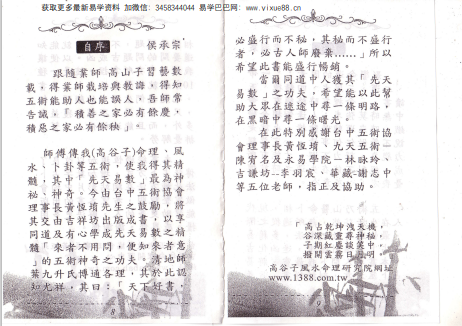 获取更多最新易学资料 加微信：3458344044 易学巴巴网：www.vixue88.cn
自序
侯承宗
跟隨業師 高山子習藝數
載，得業師栽培與教誨，得知
五術能助人也能誤人，吾師常
告誡，「積善之家必有餘慶，
積惡之家必有餘殃」。
師傅傳我（高谷子）命理、風
水、卜卦等五術，使我得其精
髓，其中「先天易數」最為神
祕、神奇。今由台中五術協會
理事長黃恆堉先生之鼓勵，將
其交由吉祥坊出版成書，以享
同道及有心學成先天易數之精
髓「來者不用問，便知來者意」
的五術神奇之功夫。清地師
葉九升氏博通各理，其於此認
知尤祥，其曰：「天下好書，
必盛行而不秘，其秘而不盛行
者，必古人師廢棄……」所以
希望此書能盛行暢銷。
當爾同道中人獲其「先天
易數」之功夫，希望能以此幫
助大眾在迷途中尋一條明路，
在黑暗中尋一條曙光。
在此特別感謝台中五術協
會理事長黃恆堉、九天五術—
陳宥名及永易學院—林咏玲、
吉謙坊--李羽宸、華葳-謝志中
等五位老師，指正及協助。
「高占乾坤洩天機，
谷深藏靈尋神秘，
子期紅塵談笑中，
撥開雲霧日月明」
高谷子風水命理研究院網址
www.1388.com.tw